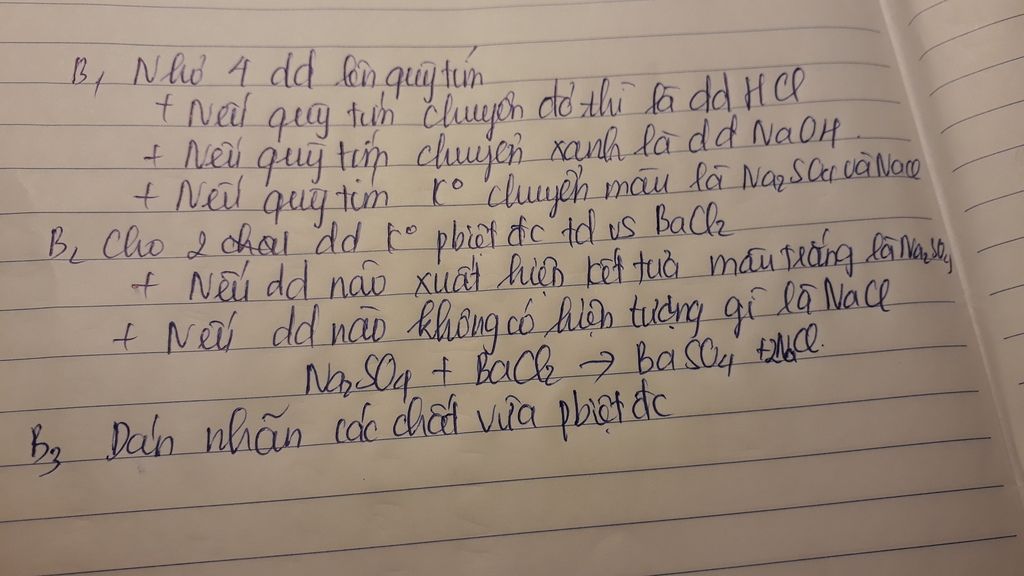 B1 Nhỏ 4 dd lên quỳ tím
+ Nếu quỳ tím chuyển đỏ thì là dd HCl
+ Nếu quỳ tím chuyển xanh là dd NaOH
+ Nếu quỳ tím ko chuyển màu là Na2SO4 và NaCl
B2 Cho 2 chai dd ko pbiệt đc td vs BaCl2
+ Nếu dd nào xuất hiện kết tủa màu trắng là Na2SO4
+ Nếu dd nào không có hiện tượng gì là NaCl
Na2SO4 + BaCl2 → BaSO4 + 2NaCl.
B3 Dán nhãn các chất vừa pbiệt đc